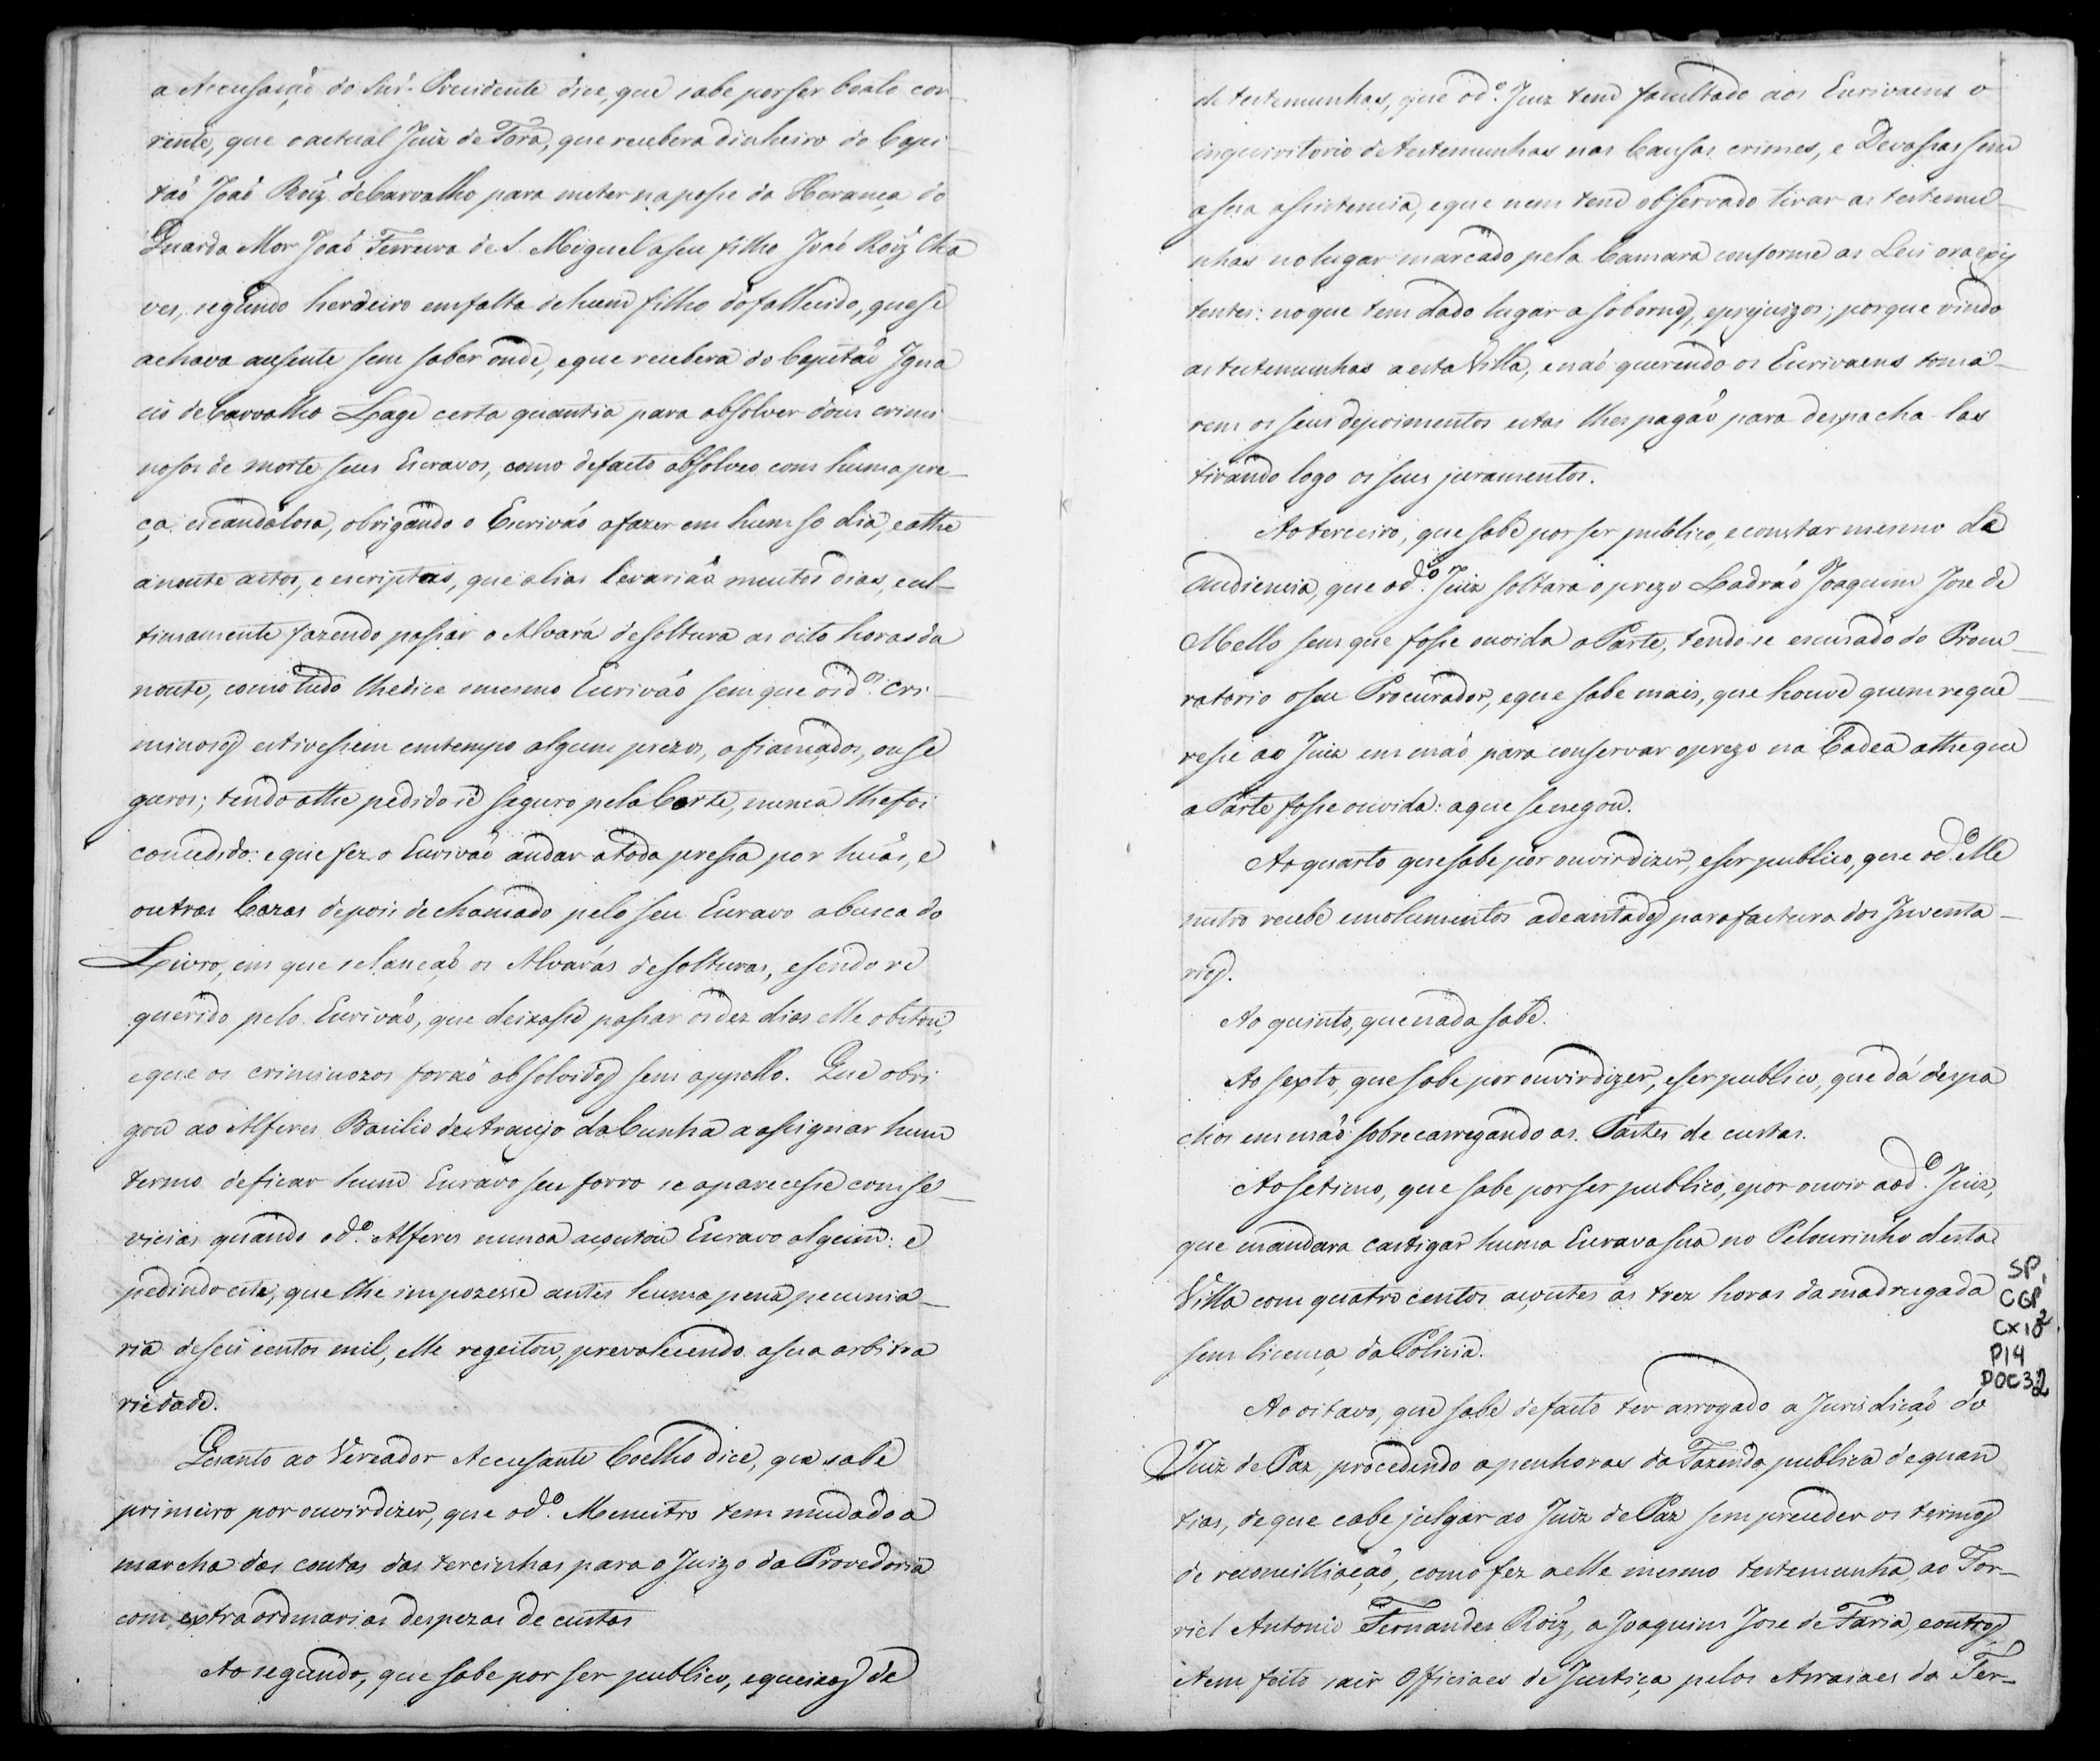 a Accusação do Snr. Prezidente dice, que sabe por ser boato cor-
rente, que o actual Juiz de Fora, que recebera dinheiro do Capi-
tão João Roiz de Carvalho para meter na posse da Herança do
Guarda Mor João Ferreira de S. Miguel a seu filho João Roiz Cha
ves, segundo herdeiro em falta de hum filho do fallecido, que se
achava ausente sem saber onde, e que recebera do Capitão Igna
cio de Carvalho Lage certa quantia para absolver dous crimi
nosos de morte seus Escravos, como de facto absolveo com huma pre-
ça escandalosa, obrigando o Escrivão a fazer em hum so dia, e athe
a noute actos, e escriptas, que alias levarião muitos dias, e ul-
timamente fazendo passar o Alvará de soltura as oito horas da
noute, como tudo lhe dice o mesmo Escrivão sem que os d.os cri-
minosos estivessem em tempo algum prezos, afiançados, ou se
guros; tendo athe pedido se seguro pela Corte, nunca lhe foi
concedido: e que fez o Escrivão andar a toda pressa por huãs, e
outras Cazas depois de chamado pelo seu Escravo a busca do
Livro, em que se lanção os Alvarás de solturas, e sendo re
querido pelo Escrivão, que deixasse passar os dez dias elle obstou,
e que os criminozos forão absolvidos sem appello. Que obri
gou ao Alferes Basilio de Araujo da Cunha a assignar hum
termo de ficar hum Escravo seu forro se aparecesse com se-
vicias quando o d.o Alferes nunca açoutou Escravo algum: e
pedindo este, que lhe impozesse antes huma pena pecunia-
ria de seis centos mil, elle regeitou, prevalecendo a sua arbitra
riedade.
Quanto ao Vereador Accusante Coelho dice, que sabe
primeiro por ouvir dizer, que o d.o Menistro tem mudado a
marcha das contas das tercinhas para o Juizo da Provedoria
com extraordinarias despezas de custas
Ao segundo, que sabe por ser publico, e queixas de
de testemunhas, que o d.o Juiz tem facultado aos Escrivaens o
inquiritorio de testemunhas nas Causas crimes, e Devassas sem
a sua assistencia, e que nem tem observado tirar as testemu-
nhas no lugar marcado pela Camara conforme as Leis ora exis
tentes: no que tem dado lugar a sobornos, e prejuizos; porque vindo
as testemunhas a esta Villa, e não querendo os Escrivaens toma-
rem os seus depoimentos estas lhes pagão para despacha-las
tirando logo os seus juramentos.
Ao terceiro, que sabe por ser publico, e constar mesmo da
audiencia, que o d.o Juiz soltara o prezo Ladrão Joaquim Jose de
Mello sem que fosse ouvida a Parte, tendo-se escusado do Procu-
ratorio o seu Procurador, e que sabe mais, que houve quem reque-
resse ao Juiz em mão para conservar o prezo na Cadea athe que
a Parte fosse ouvida: a que se negou.
Ao quarto que sabe por ouvir dizer, e ser publico, que o d.o Me
nistro recebe emolumentos adeantados para factura dos Inventa-
rios.
Ao quinto, que nada sabe.
Ao sexto, que sabe por ouvir dizer, e ser publico, que dá despa
chos em mão sobrecarregando as Partes de custas.
Ao setimo, que sabe por ser publico, e por ouvir ao d.o Juiz,
que mandara castigar huma Escrava sua no Pelourinho desta
Villa com quatro centos açoutes ás trez horas da madrugada
sem licença da Policia.
Ao oitavo, que sabe de facto ter arrogado a Jurisdicão do
Juiz de Paz, procedendo a penhoras da Fazenda publica de quan
tias, de que cabe julgar ao Juiz de Paz sem preceder os termos
de reconcilliação, como fez a elle mesmo testemunha, ao For-
riel Antonio Fernandes Roiz, a Joaquim Jose de Faria, e outros,
e tem feito sair Officiaes de Justiça pelos Arraiaes do Ter-
SP,
CGP,
CX102,
P14
DOC32